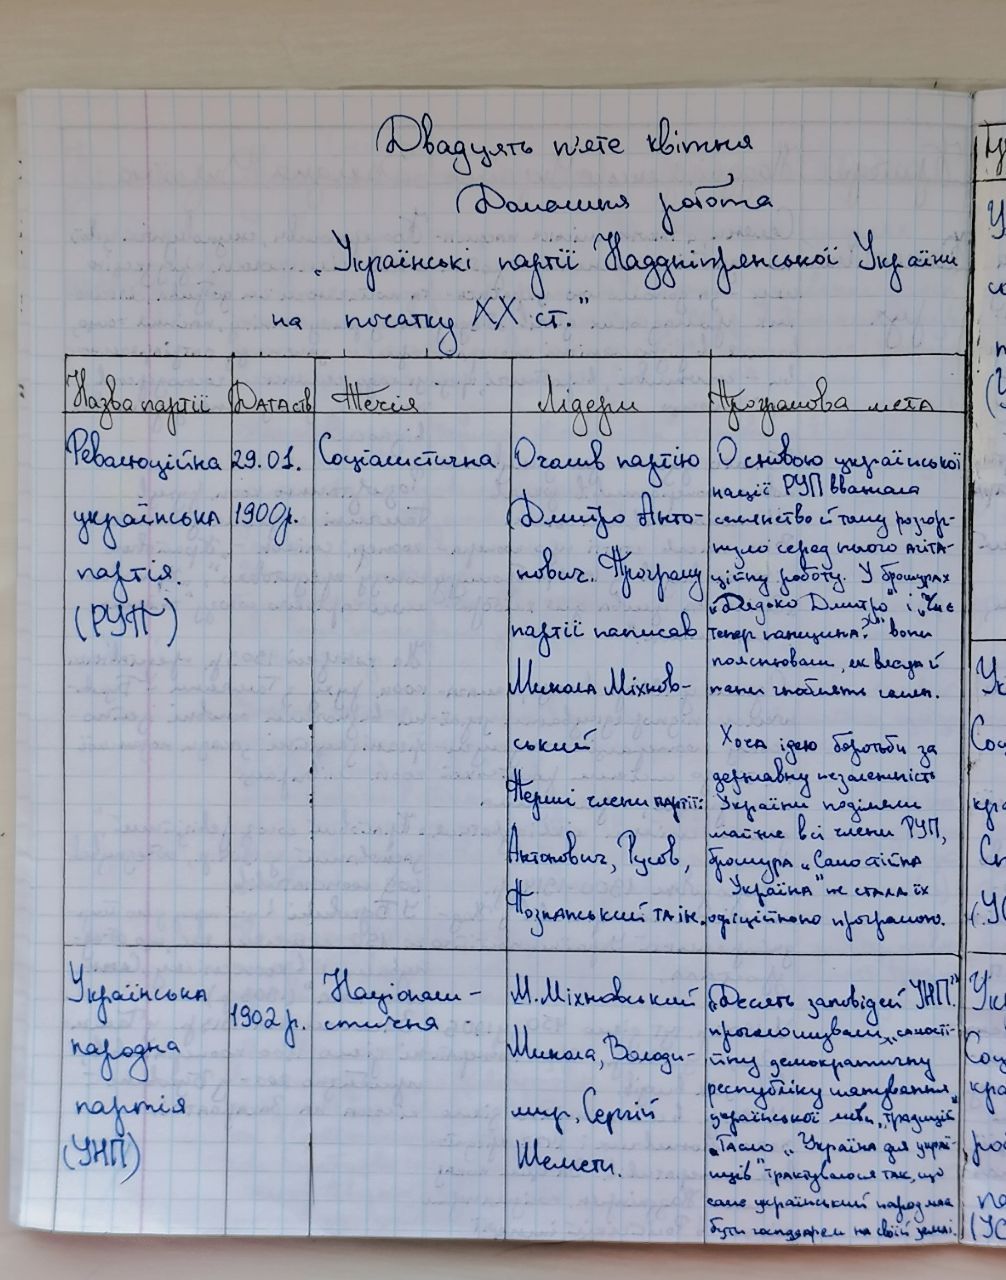 Двадцять п'яте квітня
Домашня робота
„Українські партії Наддніпрянської України
на початку XX ст."
Назва партії
Дата ств
Течія
Лідери
Програмова мета
Революційна
українська
партія.
(РУП)
29.01.
1900р.
Соціалістична
Очолив партію
Дмитро Анто-
нович. Програму
партії написав
Микола Міхнов-
ський
Перші члени партії:
Антонович, Русов,
Познанський та ін.
Основою української
нації РУП вважала
селянство й тому розгор-
нуло серед нього агіта-
ційну роботу. У брошурах
„Дядько Дмитро" і „Чи є
тепер панщина?" вони
пояснювали, як влада й
пани гноблять селян.
Хоча ідею боротьби за
державну незалежність
України поділяли
майже всі члени РУП,
брошура „Самостійна
Україна" не стала їх
офіційною програмою.
Українська
народна
партія
(УНП)
1902 р.
Націоналі-
стична
М. Міхновський
Микола, Володи-
мир, Сергій
Шемети.
„Десять заповідей УНП"
проголошували „самості-
йну демократичну
республіку шанування
української мови, традицій"
Гасло „Україна для украї-
нців" трактувалося так, що
саме український народ має
бути господарем на своїй землі.